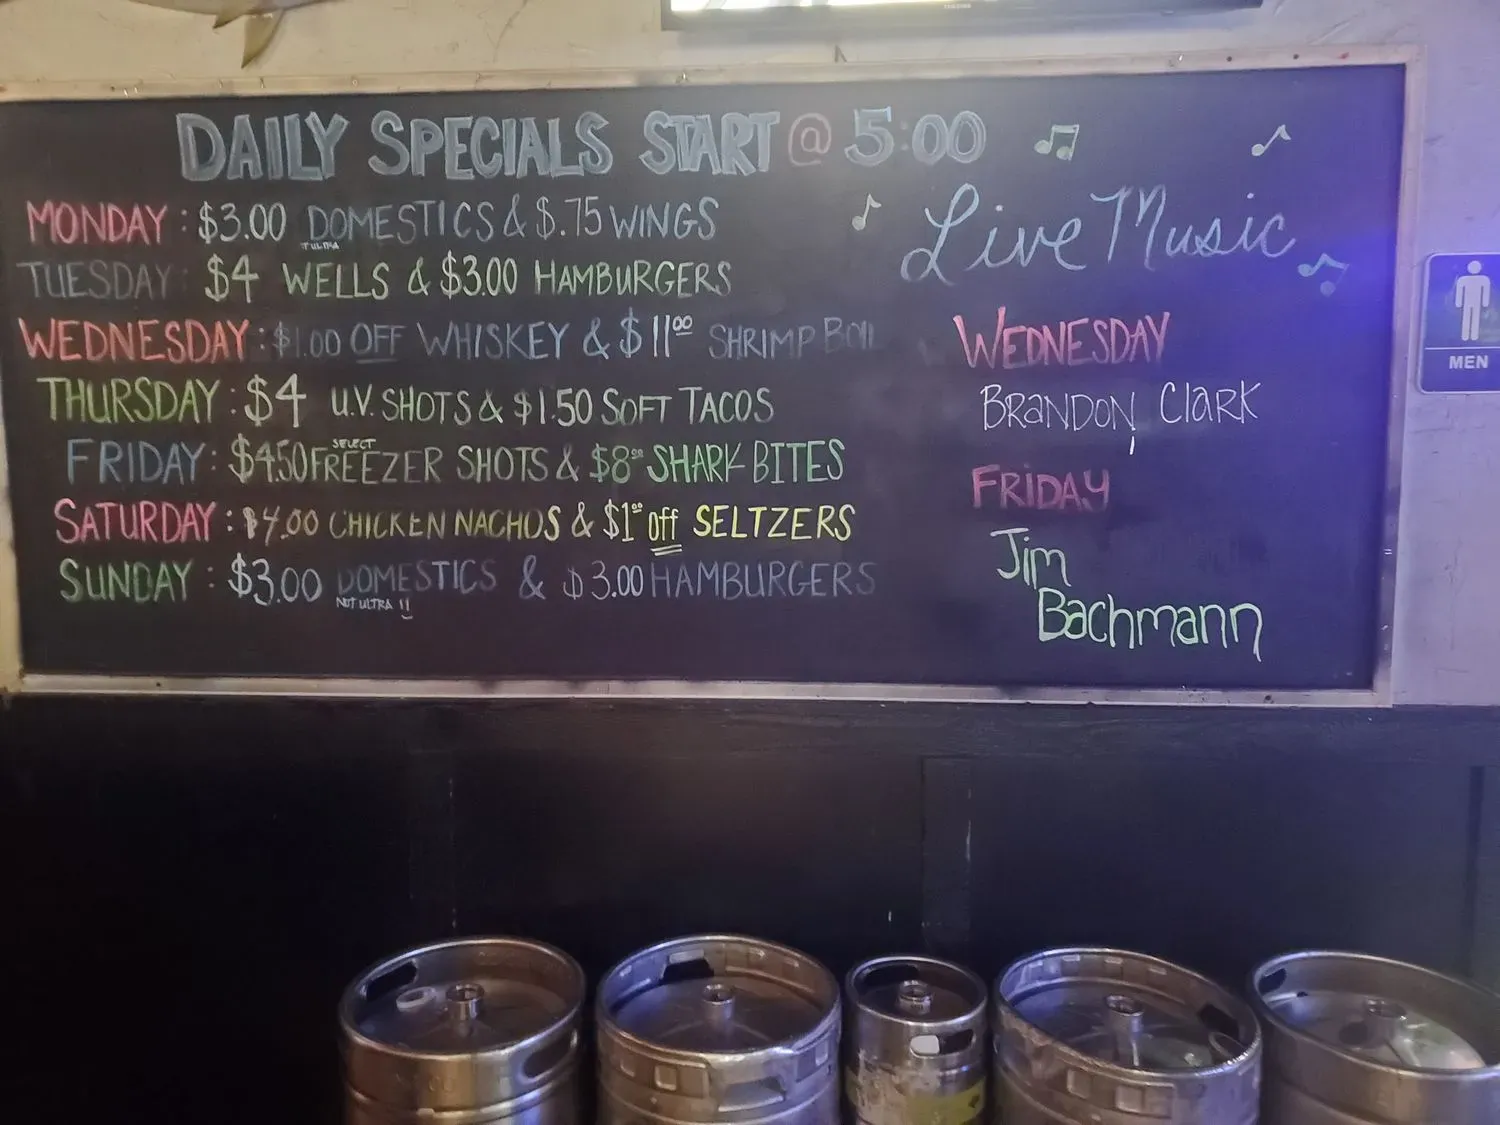 DAILY SPECIALS START @ 5:00
MONDAY : $3.00 DOMESTICS & $.75 WINGS
TUESDAY : $4 WELLS & $3.00 HAMBURGERS
WEDNESDAY : $1.00 OFF WHISKEY & $11.00 SHRIMP BOIL
THURSDAY : $4 U.V. SHOTS & $1.50 SOFT TACOS
SELECT
FRIDAY : $4.50 FREEZER SHOTS & $8.00 SHARK BITES
SATURDAY : $4.00 CHICKEN NACHOS & $1.00 Off SELTZERS
SUNDAY : $3.00 DOMESTICS & $3.00 HAMBURGERS
NOT ULTRA !!
Live Music
WEDNESDAY
BRANDON ClARK
FRiDAY
Jim
Bachmann
MEN